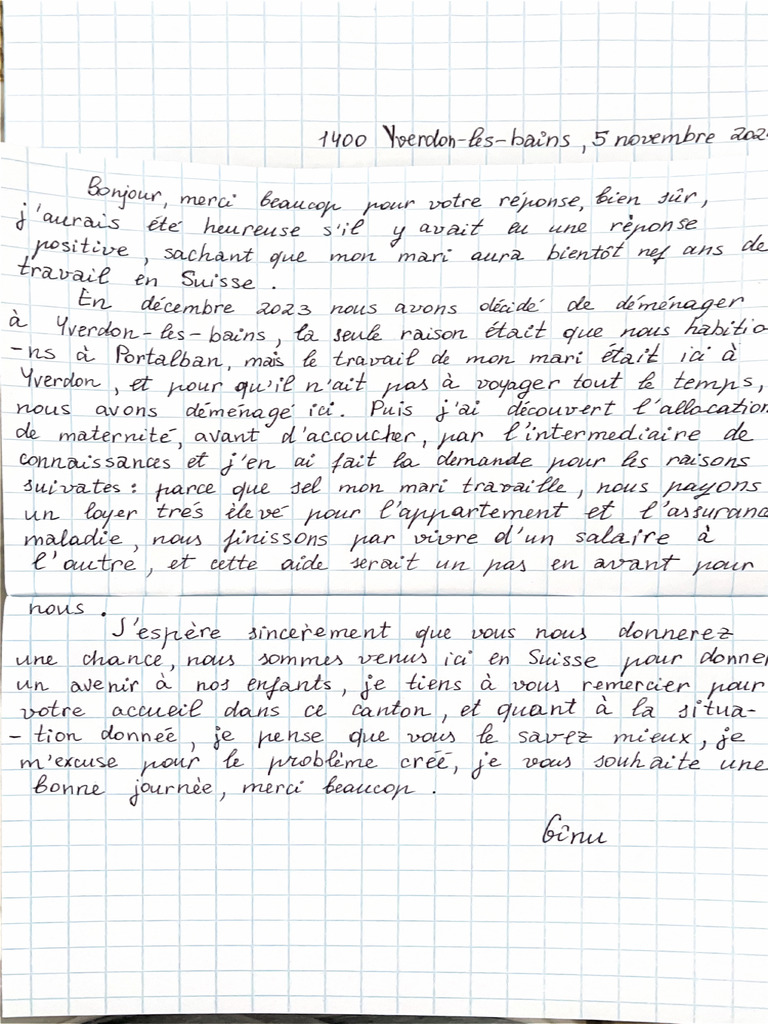 1400 Yverdon-les-bains, 5 novembre 202
Bonjour, merci beaucop pour votre réponse, bien sûr,
j'aurais été heureuse s'il y avait eu une réponse
positive, sachant que mon mari aura bientôt nef ans de
travail en Suisse.
En décembre 2023 nous avons décidé de déménager
à Yverdon-les-bains, la seule raison était que nous habitio-
-ns à Portalban, mais le travail de mon mari était ici à
Yverdon, et pour qu'il n'ait pas à voyager tout le temps,
nous avons déménagé ici. Puis j'ai découvert l'allacation
de maternité, avant d'accoucher, par l'intermediaire de
connaissances et j'en ai fait la demande pour les raisons
suivates: parce que sel mon mari travaille, nous payons
un loyer trés èlevé pour l'appartement et l'assuranc
maladie, nous finissons par vivre d'un salaire à
l'autre, et cette aide serait un pas en avant pour
nous.
J'espère sincèrement que vous nous donnerez
une chance, nous sommes venus ici en Suisse pour donner
un avenir à nos enfants, je tiens à vous remercier pour
votre accueil dans ce canton, et quant à la situa-
-tion donnée, je pense que vous le savez mieux, je
m'excuse pour le problème créé, je vous souhaite une
bonne journée, merci beaucop.